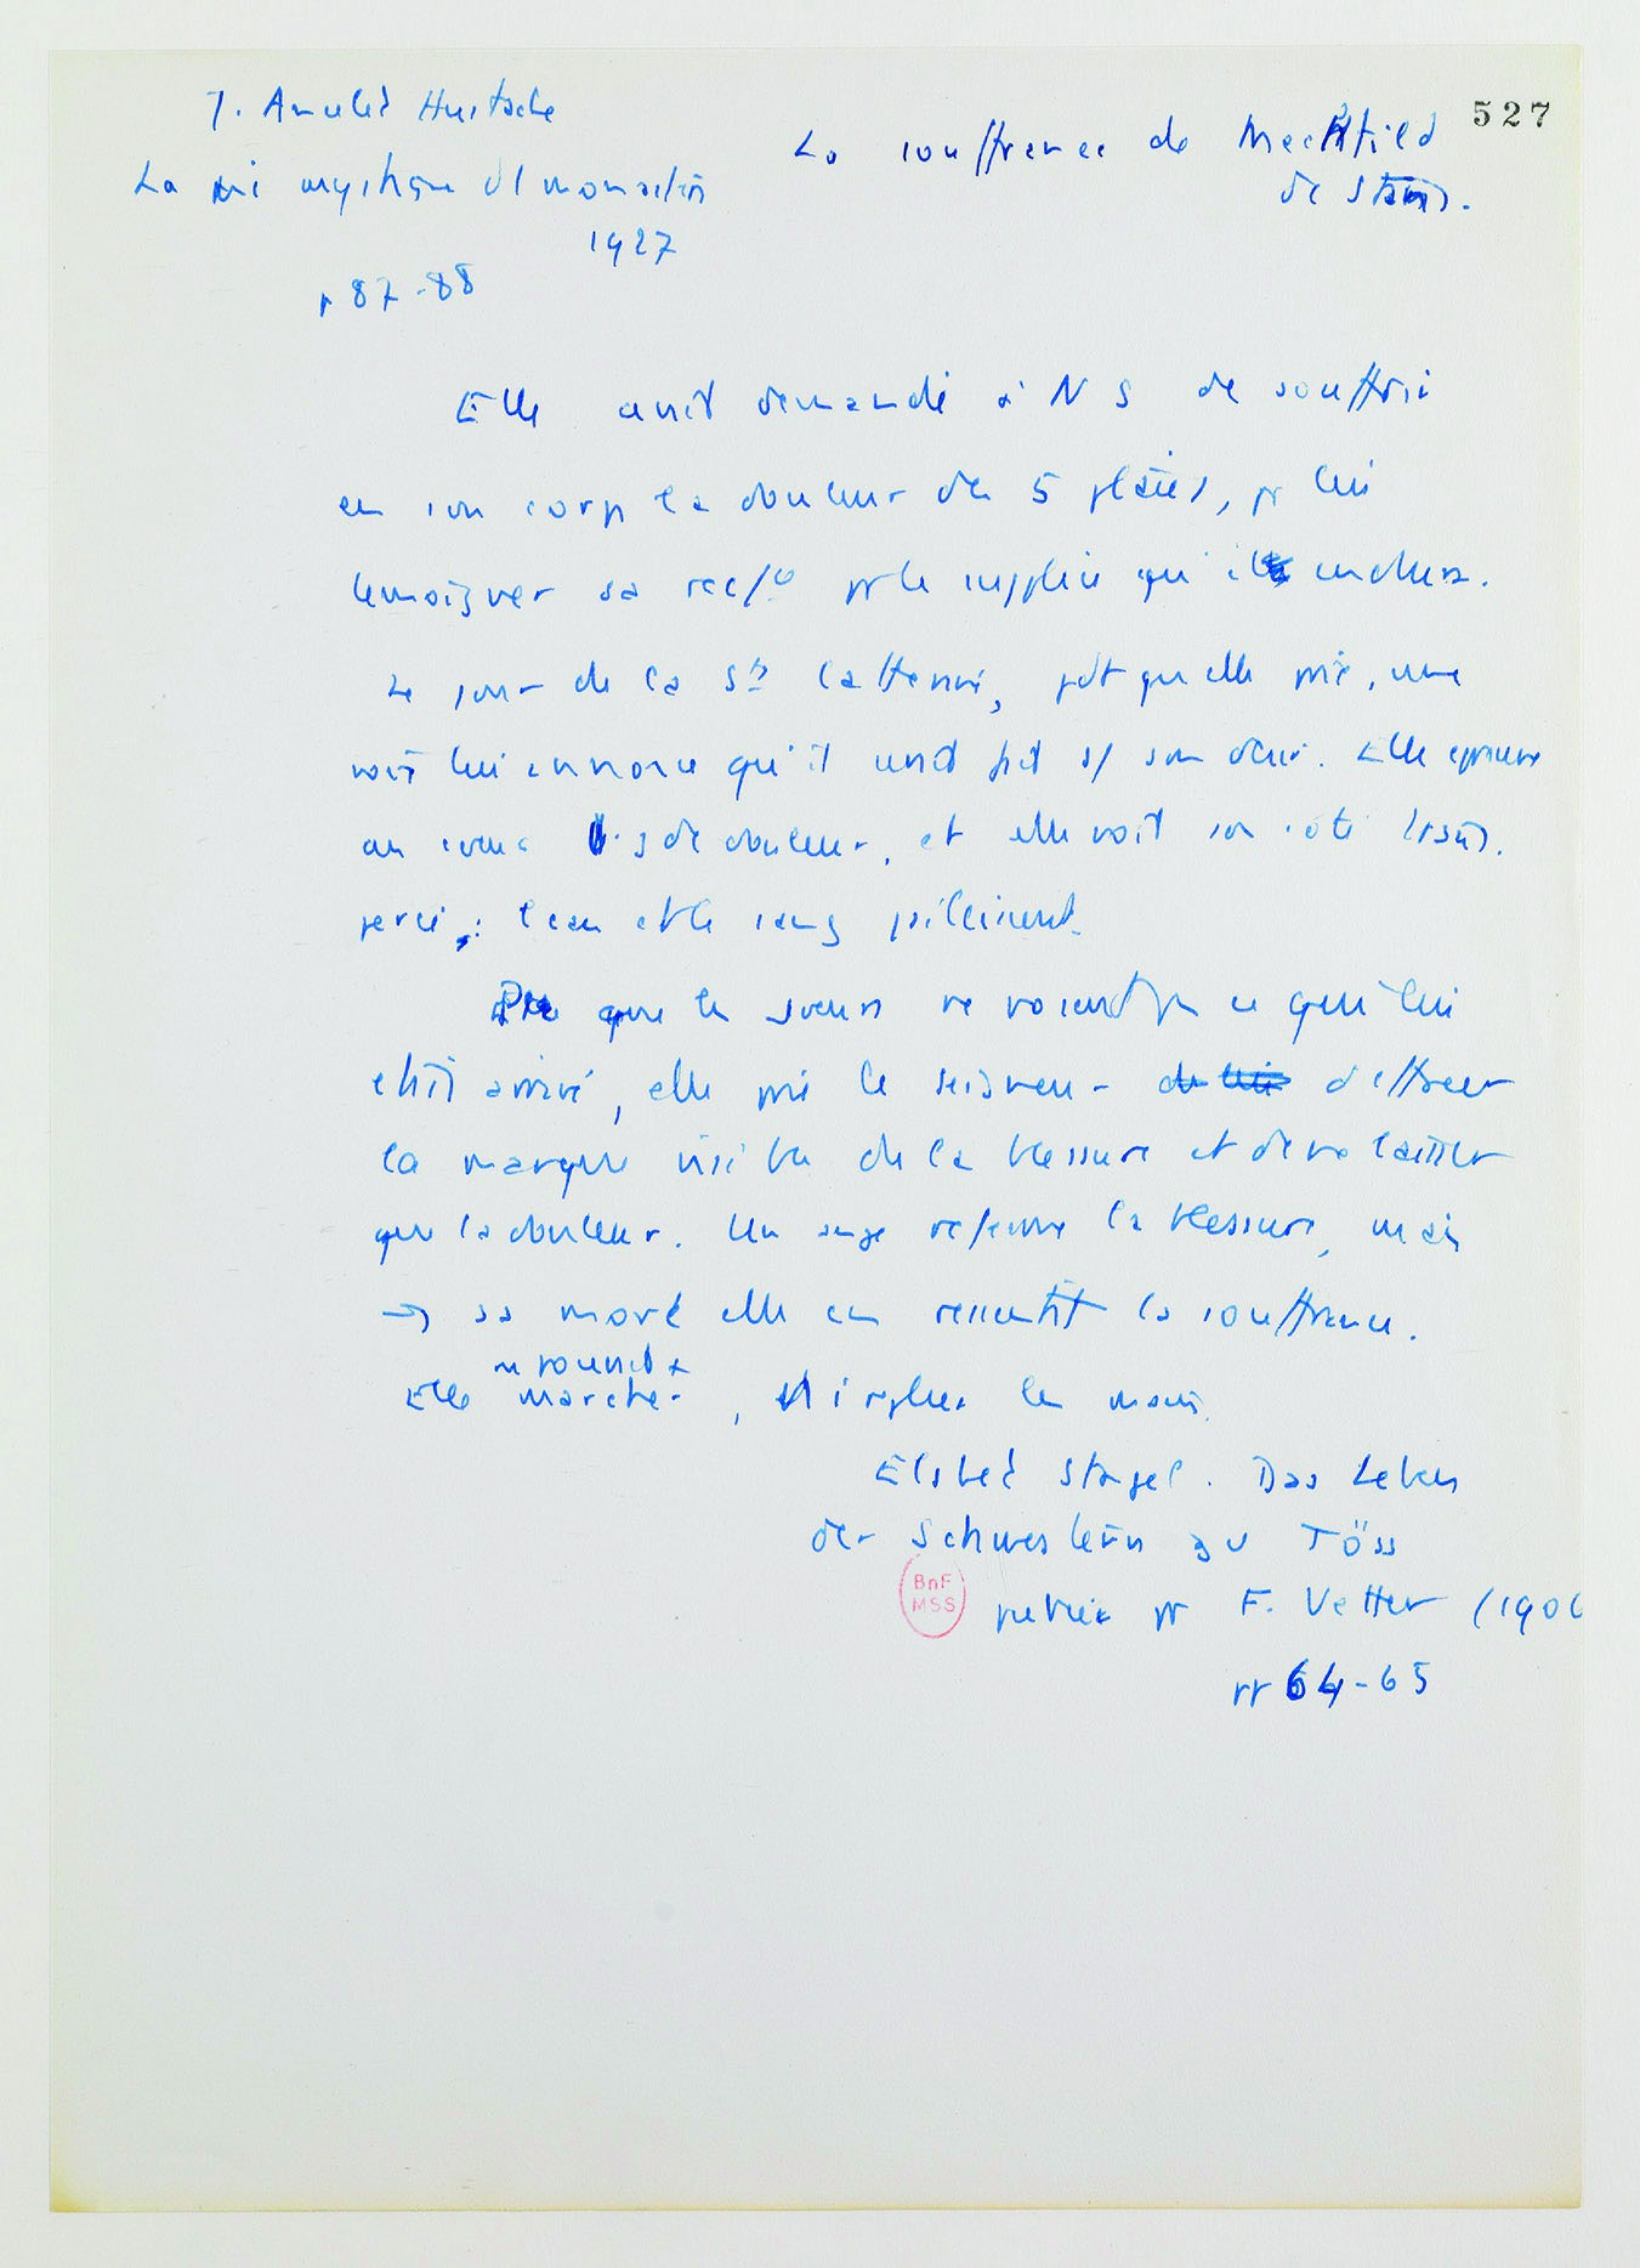 J. Ancelet Hustache
La vie mystique d'1 monastère
1927
p 87-88
La souffrance de Mechtild
de Stans.
527
Elle avait demandé à N S de souffrir
en son corps la douleur des 5 plaies, pr lui
témoigner sa pr le supplice qu'il endura.
Le jour de la Ste Catherine, pdt qu'elle prie, une
voix lui annonce qu'il serait fait s/ son désir. Elle éprouve
au coeur de douleur, et elle voit son côté
percé : l'eau et le sang jaillissent.
que les soeurs ne voient pas ce qui lui
était arrivé, elle prie le Seigneur d'effacer
la marque visible de la blessure et de ne laisser
que la douleur. Un ange referme la blessure, mais
sa mort elle en ressentit la souffrance.
Elle ne pouvait + marcher, ni les mains.
Elsbet Stagel. Das Leben
der Schwestern zu Töss
publié pr F. Vetter (190
pp 64-65
BnF
MSS